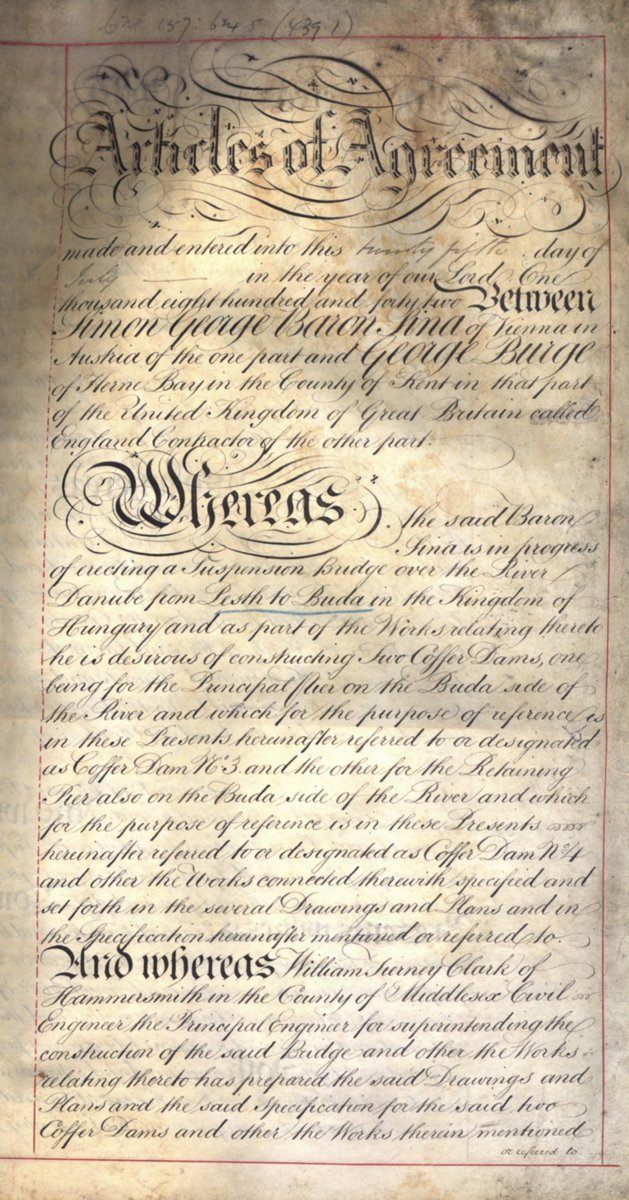 624.157:624.5 (439.1)
Articles of Agreement
made and entered into this twenty fifth day of
July in the year of our Lord One
thousand eight hundred and forty two Between
Simon George Baron Sina of Vienna in
Austria of the one part and George Burge
of Herne Bay in the County of Kent in that part
of the United Kingdom of Great Britain called
England Contractor of the other part.
Whereas the said Baron
Sina is in progress
of erecting a Suspension Bridge over the River
Danube from Pesth to Buda in the Kingdom of
Hungary and as part of the Works relating thereto
he is desirous of constructing Two Coffer Dams, one
being for the Principal Pier on the Buda side of
the River and which for the purpose of reference is
in these Presents hereinafter referred to or designated
as Coffer Dam No. 3. and the other for the Retaining
Pier also on the Buda side of the River and which
for the purpose of reference is in these Presents
hereinafter referred to or designated as Coffer Dam No. 4
and other the Works connected therewith specified and
set forth in the several Drawings and Plans and in
the Specification hereinafter mentioned or referred to.
And whereas William Tierney Clark of
Hammersmith in the County of Middlesex Civil
Engineer the Principal Engineer for superintending the
construction of the said Bridge and other the Works
relating thereto has prepared the said Drawings and
Plans and the said Specification for the said two
Coffer Dams and other the Works therein mentioned
or referred to